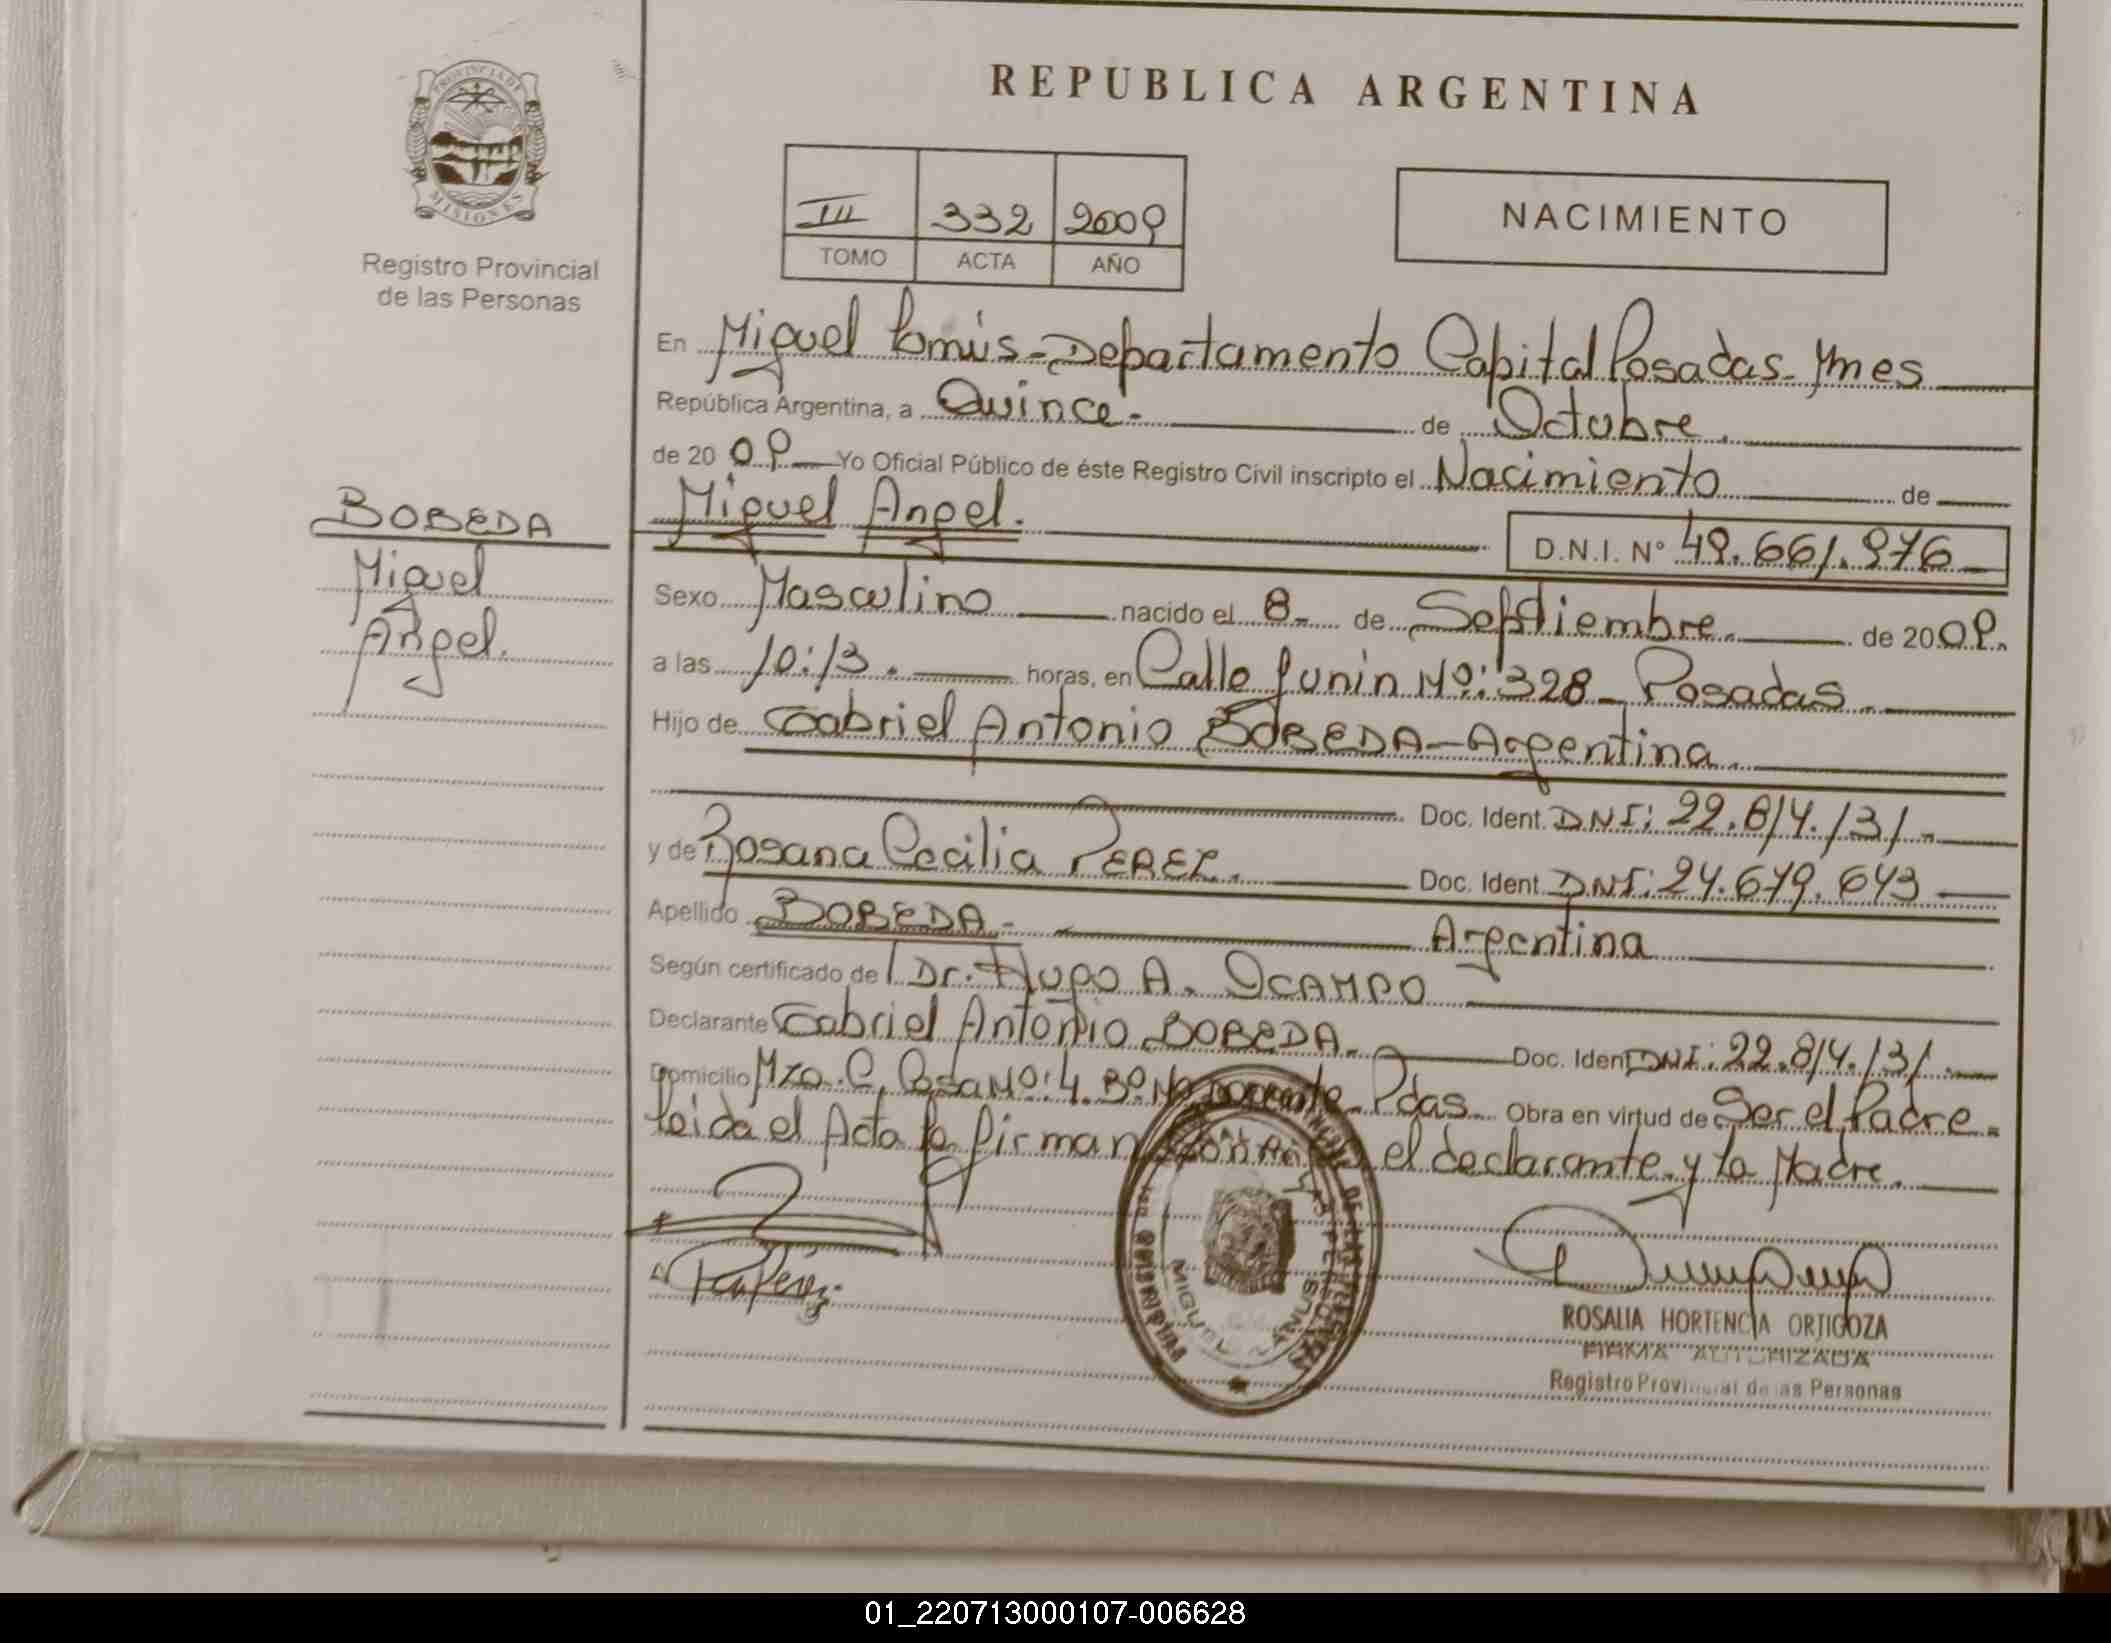 PROVINCIA DE
MISIONES
Registro Provincial
de las Personas
REPUBLICA ARGENTINA
III 332 2009
TOMO ACTA AÑO
NACIMIENTO
En Miguel Lanús - Departamento Capital Posadas - Mnes
República Argentina, a Quince - de Octubre.
de 2009 Yo Oficial Público de éste Registro Civil inscripto el Nacimiento de
Miguel Angel. D.N.I. Nº 49.661.976
BOBEDA
Miguel
Angel.
Sexo Masculino nacido el 8. de Septiembre. de 2009.
a las 10:13. horas, en Calle Junin Nº: 328 - Posadas.
Hijo de Gabriel Antonio BOBEDA - Argentina.
Doc. Ident. DNI: 22.814.131.
y de Rosana Cecilia PEREZ. Doc. Ident. DNI: 24.679.643
Apellido BOBEDA - Argentina
Según certificado de Dr. Hugo A. OCAMPO
Declarante Gabriel Antonio BOBEDA. Doc. Ident DNI: 22.814.131.
Domicilio Mza. C, Casa Nº: 4. Bº. Pdas. Obra en virtud de Ser el Padre.
leida el Acta la firman el declarante y la Madre.
MIGUEL LANUS
ROSALIA HORTENCIA ORTIGOZA
FIRMA AUTORIZADA
Registro Provincial de las Personas
01_220713000107-006628